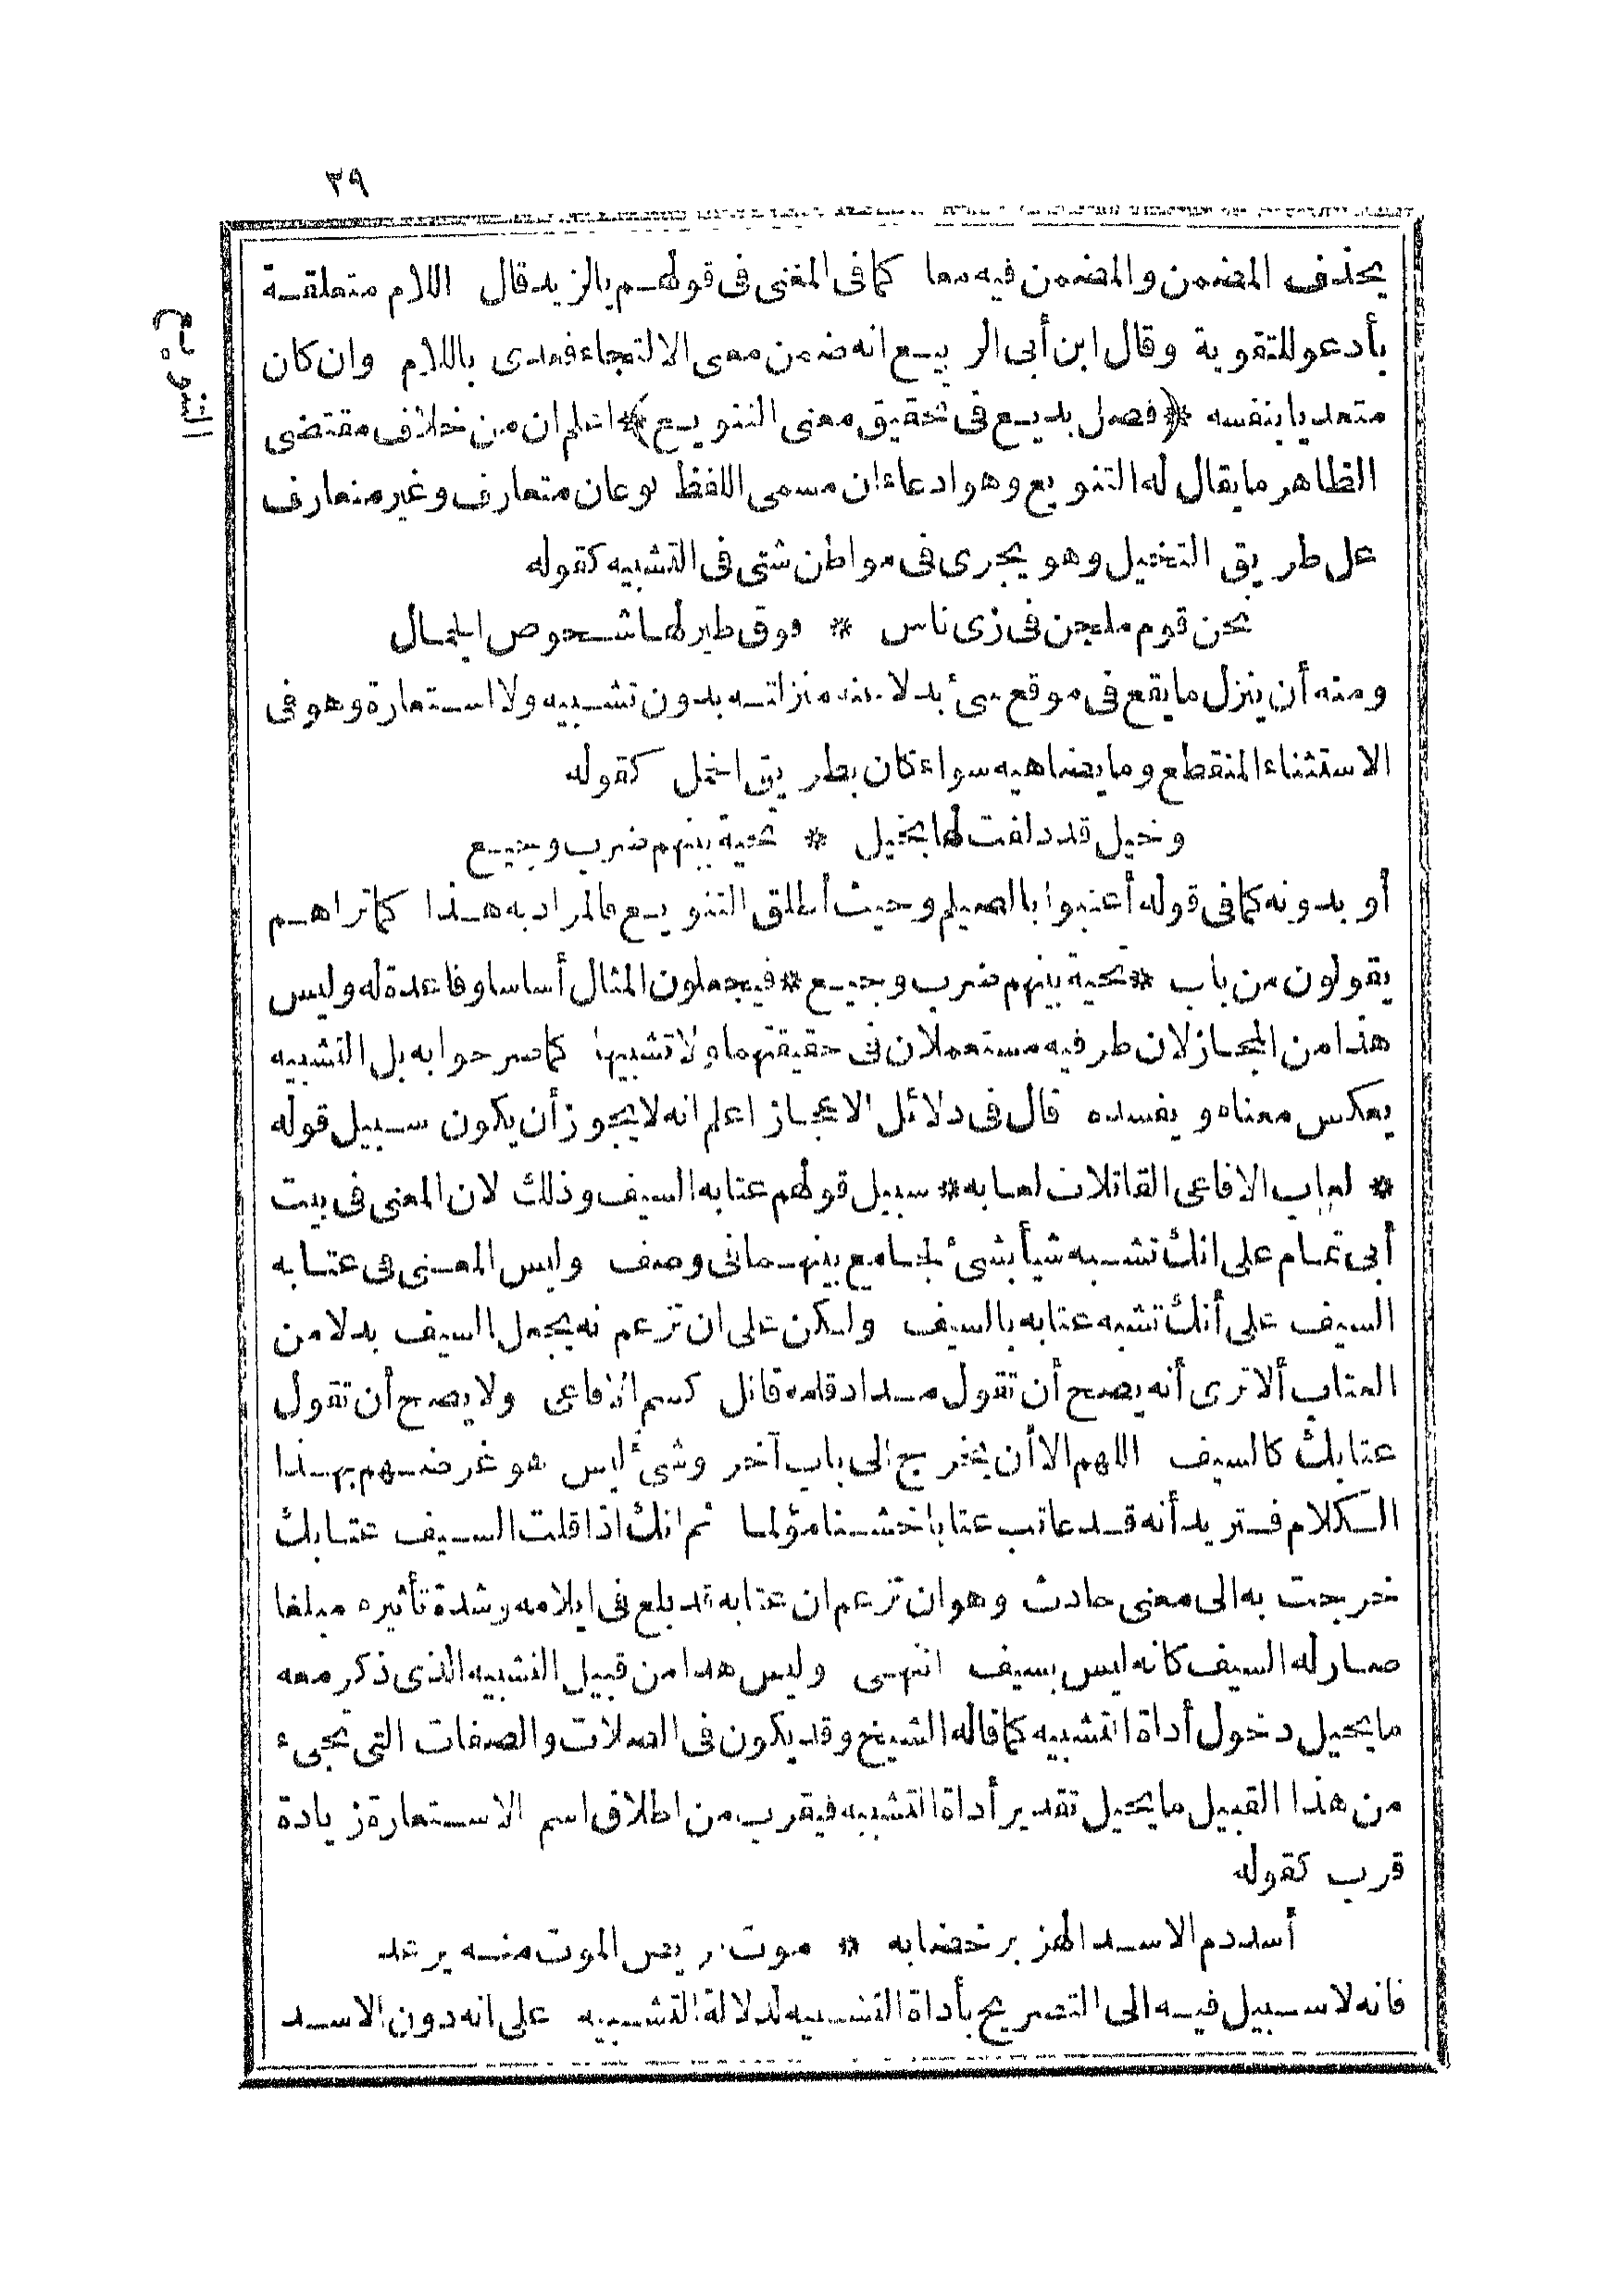 ٣٩
يحذف المضمن والمضمن فيه معا كما فى المغنى فى قولهم يالزيد قال اللام متعلقة
بأدعو للتقوية وقال ابن أبى الربيع انه ضمن معنى الالتجاء فعدى باللام وان كان
متعديا بنفسه *(فصل بديع فى تحقيق معنى التنويع)* اعلم ان من خلاف مقتضى
الظاهر ما يقال له التنويع وهو ادعاء ان مسمى اللفظ نوعان متعارف وغير متعارف
على طريق التخييل وهو يجرى فى مواطن شتى فى التشبيه كقوله
نحن قوم ملجن فى زى ناس * فوق طير لها شخوص الجمال
ومنه أن ينزل ما يقع فى موقع شئ بدلا عنه منزلته بدون تشبيه ولا استعارة وهو فى
الاستثناء المنقطع وما يضاهيه سواء كان بطريق الحمل كقوله
وخيل قد دلفت لها بخيل * تحية بينهم ضرب وجيع
أو بدونه كما فى قوله أعتبوا بالصيلم وحيث أطلق التنويع فالمراد به هذا كما تراهم
يقولون من باب * تحية بينهم ضرب وجيع * فيجعلون المثال أساسا وقاعدة له وليس
هذا من المجاز لان طرفيه مستعملان فى حقيقتهما ولا تشبيها كما صرحوا به بل التشبيه
يعكس معناه ويفسده قال فى دلائل الاعجاز اعلم انه لا يجوز أن يكون سبيل قوله
* لعاب الافاعى القاتلات لعابه * سبيل قولهم عتابه السيف وذلك لان المعنى فى بيت
أبى تمام على انك تشبه شيأ بشئ لجامع بينهما فى وصف وليس المعنى فى عتابه
السيف على أنك تشبه عتابه بالسيف ولكن على ان تزعم نه يجعل السيف بدلا من
العتاب ألا ترى أنه يصح أن تقول مداد قلمه قاتل كسم الافاعى ولا يصح أن تقول
عتابك كالسيف اللهم الا أن يخرج الى باب آخر وشئ ليس هو غرضهم بهذا
الكلام فتريد أنه قد عاتب عتابا خشنا مؤلما ثم انك اذا قلت السيف عتابك
خرجت به الى معنى حادث وهو ان تزعم ان عتابه قد بلغ فى ايلامه وشدة تأثيره مبلغا
صار له السيف كانه ليس بسيف انتهى وليس هذا من قبيل التشبيه الذى ذكر معه
ما يحيل دخول أداة التشبيه كما قاله الشيخ وقد يكون فى الصلات والصفات التى تجىء
من هذا القبيل ما يحيل تقدير أداة التشبيه فيقرب من اطلاق اسم الاستعارة زيادة
قرب كقوله
أسد دم الاسد الهزبر خضابه * موت فريص الموت منه يرعد
فانه لا سبيل فيه الى التصريح بأداة التشبيه لدلالة التشبيه على انه دون الاسد
التنويع